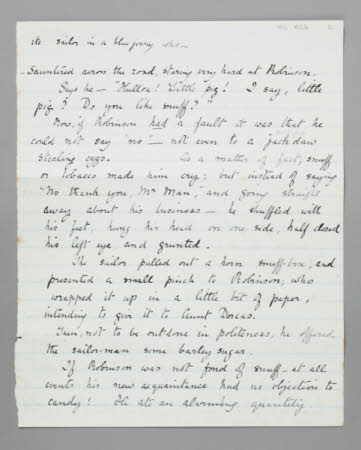 the sailor in a blue jersey who—
sauntered across the road, staring very hard at Robinson.
Says he — "Hulloa! Little pig! I say, little
pig? Do you like snuff?"
Now, if Robinson had a fault it was that he
could not say "no"— not even to a jackdaw
stealing eggs. As a matter of fact, snuff
or tobacco made him cry; but instead of saying
"No thank you, Mr Man," and going straight
away about his business — he shuffled with
his feet, hung his head on one side, half closed
his left eye and grunted.
The sailor pulled out a horn snuff-box, and
presented a small pinch to Robinson, who
wrapped it up in a little bit of paper,
intending to give it to Aunt Dorcas.
Then, not to be outdone in politeness, he offered
the sailor-man some barley sugar.
If Robinson was not fond of snuff — at all
events his new acquaintance had no objection to
candy! He ate an alarming quantity